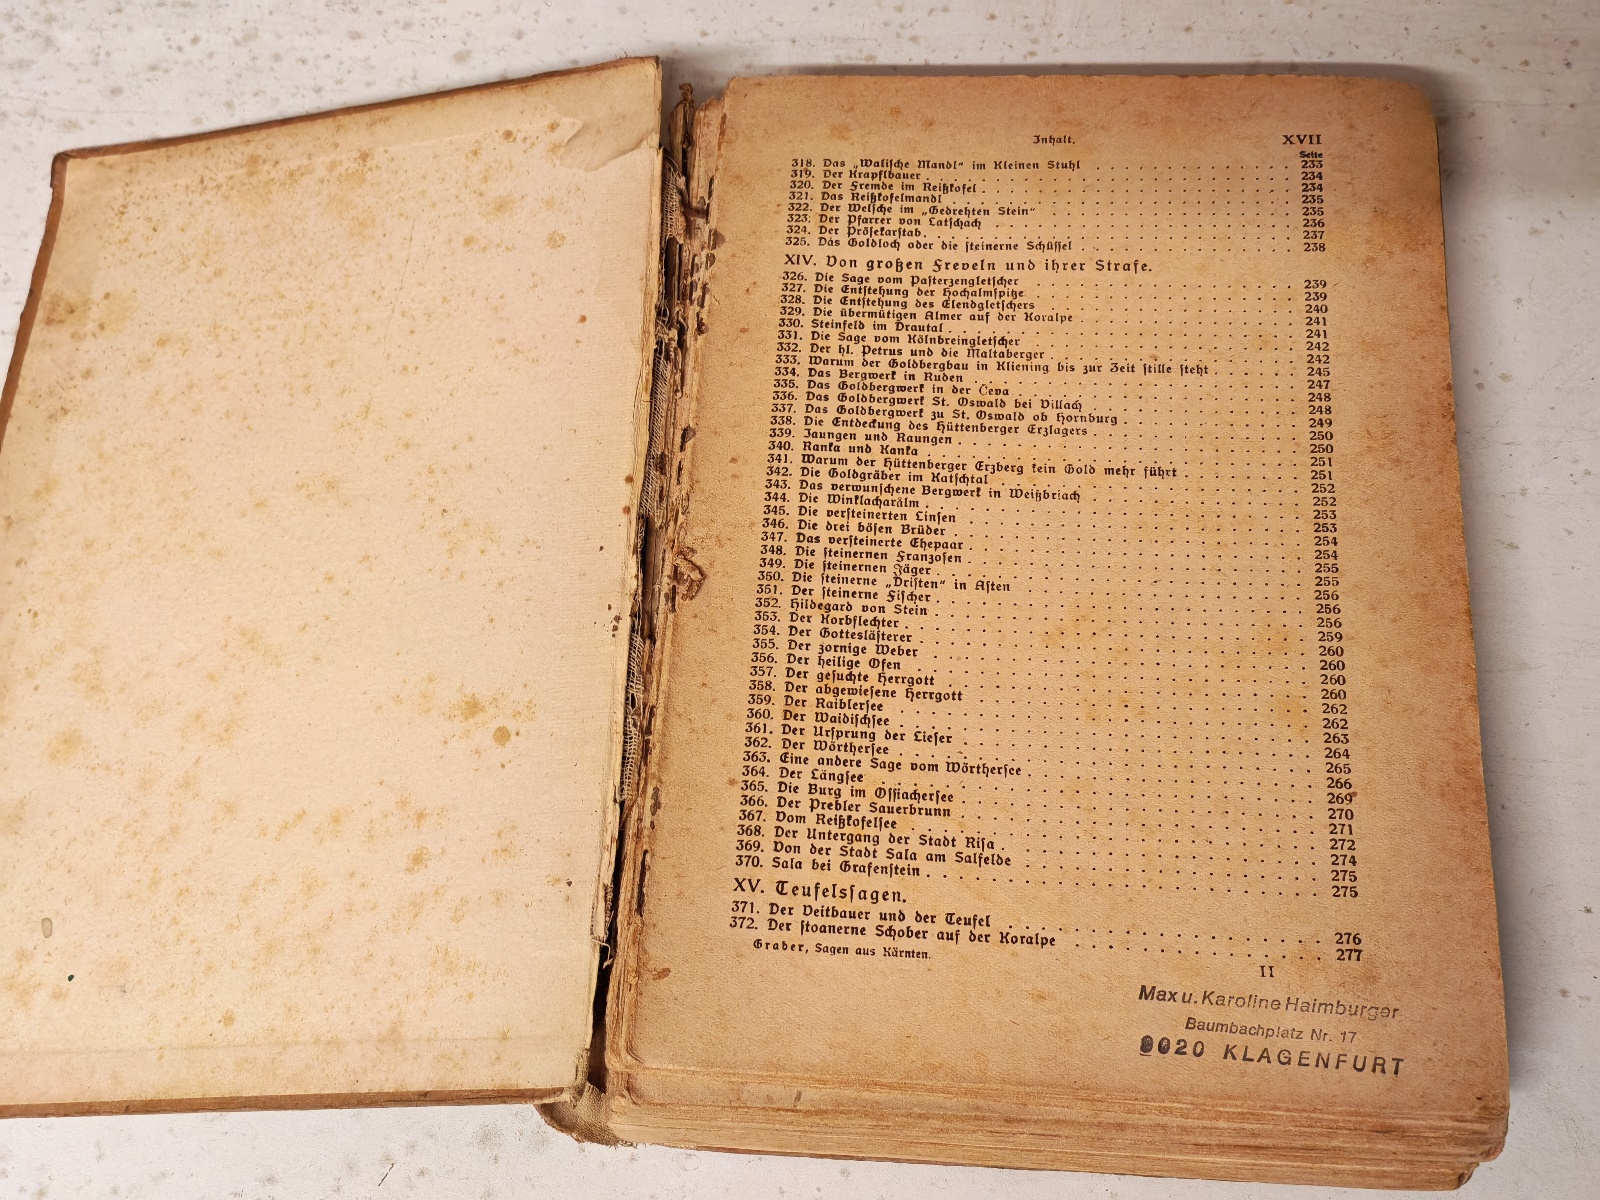 Inhalt. XVII
Seite
318. Das „Walische Mandl“ im Kleinen Stuhl 233
319. Der Krapflbauer 234
320. Der Fremde im Reißkofel 234
321. Das Reißkofelmandl 235
322. Der Welsche im „Gedrehten Stein“ 235
323. Der Pfarrer von Latschach 236
324. Der Prösekarstab 237
325. Das Goldloch oder die steinerne Schüssel 238
XIV. Von großen Freveln und ihrer Strafe.
326. Die Sage vom Pasterzengletscher 239
327. Die Entstehung der Hochalmspitze 239
328. Die Entstehung des Elendgletschers 240
329. Die übermütigen Almer auf der Koralpe 241
330. Steinfeld im Drautal 241
331. Die Sage vom Kölnbreingletscher 242
332. Der hl. Petrus und die Maltaberger 242
333. Warum der Goldbergbau in Kliening bis zur Zeit stille steht 245
334. Das Bergwerk in Ruden 247
335. Das Goldbergwerk in der Čeva 248
336. Das Goldbergwerk St. Oswald bei Villach 248
337. Das Goldbergwerk zu St. Oswald ob Hornburg 249
338. Die Entdeckung des Hüttenberger Erzlagers 250
339. Jaungen und Raungen 250
340. Ranka und Kanka 251
341. Warum der Hüttenberger Erzberg kein Gold mehr führt 251
342. Die Goldgräber im Katschtal 252
343. Das verwunschene Bergwerk in Weißbriach 252
344. Die Winklacharälm 253
345. Die versteinerten Linsen 253
346. Die drei bösen Brüder 254
347. Das versteinerte Ehepaar 254
348. Die steinernen Franzosen 255
349. Die steinernen Jäger 255
350. Die steinerne „Dristen“ in Asten 256
351. Der steinerne Fischer 256
352. Hildegard von Stein 256
353. Der Korbflechter 259
354. Der Gotteslästerer 260
355. Der zornige Weber 260
356. Der heilige Ofen 260
357. Der gesuchte Herrgott 260
358. Der abgewiesene Herrgott 262
359. Der Raiblersee 262
360. Der Waidischsee 263
361. Der Ursprung der Lieser 264
362. Der Wörthersee 265
363. Eine andere Sage vom Wörthersee 266
364. Der Längsee 269
365. Die Burg im Ossiachersee 270
366. Der Prebler Sauerbrunn 271
367. Vom Reißkofelsee 272
368. Der Untergang der Stadt Risa 274
369. Von der Stadt Sala am Salfelde 275
370. Sala bei Grafenstein 275
XV. Teufelssagen.
371. Der Veitbauer und der Teufel 276
372. Der stoanerne Schober auf der Koralpe 277
Graber, Sagen aus Kärnten. II
Max u. Karoline Haimburger
Baumbachplatz Nr. 17
9020 KLAGENFURT